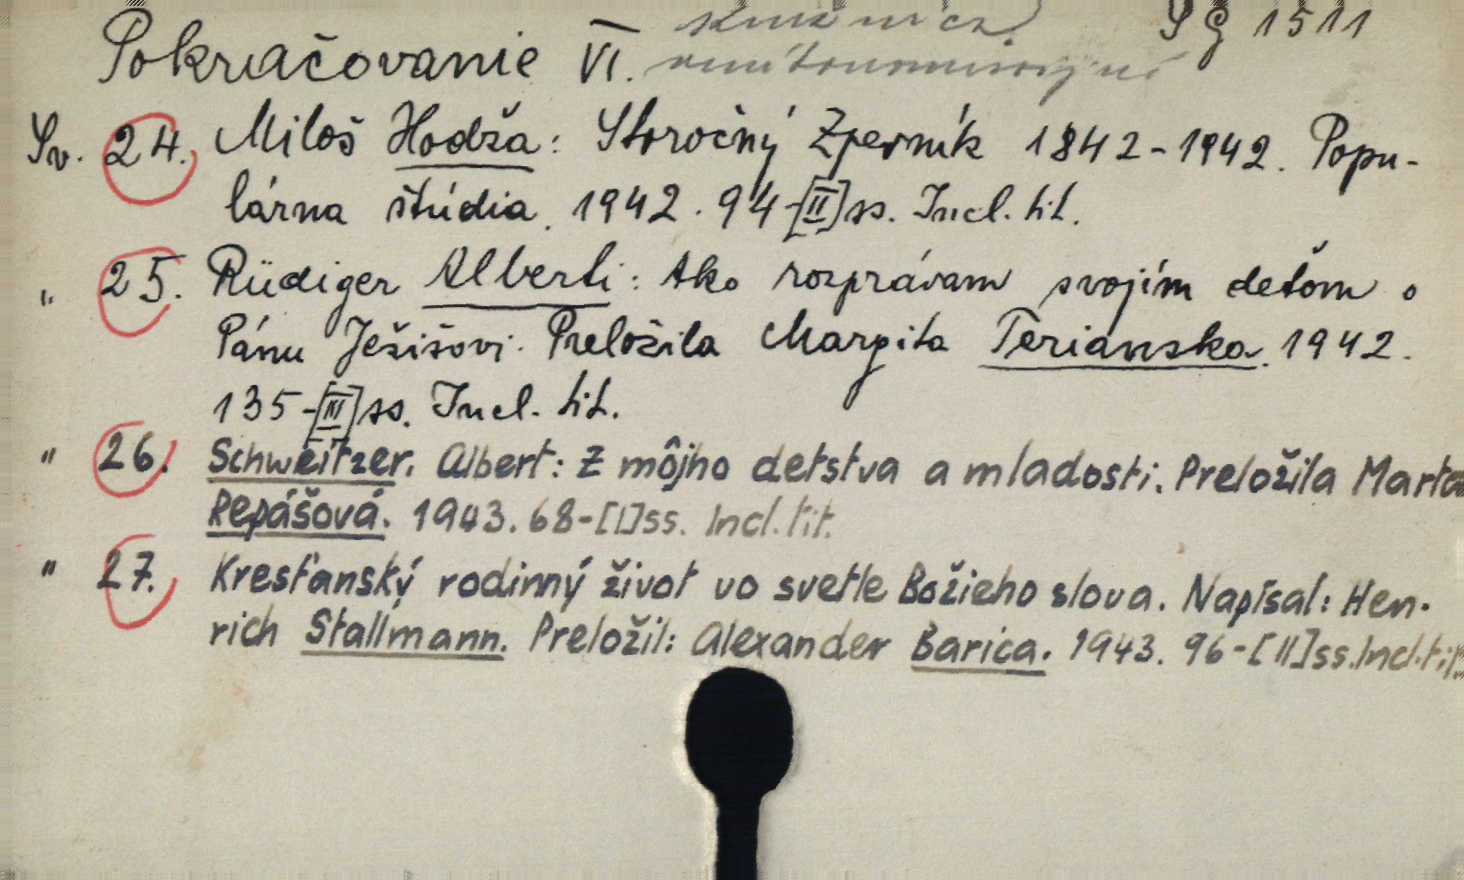 SG 1511
Pokračovanie VI.
Sv. 24. Miloš Hodža: Storočný Zperník 1842-1942. Popu-
lárna štúdia. 1942. 94-[II] ss. Incl. tit.
" 25. Rüdiger Alberti: Ako rozprávam svojím deťom o
Pánu Ježišovi. Preložila Margita Terianska. 1942.
135-[III] ss. Incl. tit.
" 26. Schweitzer. Albert: Z môjho detstva a mladosti. Preložila Marta
Repášová. 1943. 68-[I] ss. Incl. tit.
" 27. Kresťanský rodinný život vo svetle Božieho slova. Napísal: Hen-
rich Stallmann. Preložil: Alexander Barica. 1943. 96-[II] ss. Incl. tit.